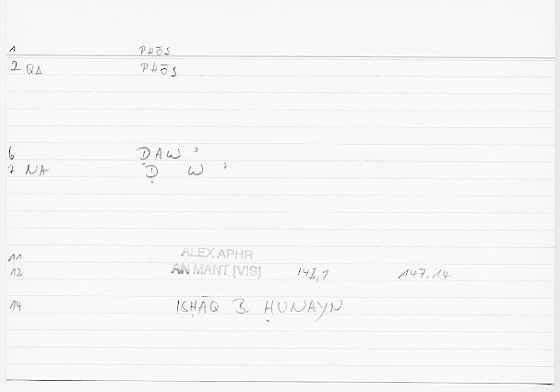 1 PHŌS
2 QΔ PHŌS
6 ḌAWʾ
7 NA Ḍ W ʾ
11 ALEX APHR
12 AN MANT [VIS] 142,1 147.14
14 ISḤĀQ B. ḤUNAYN